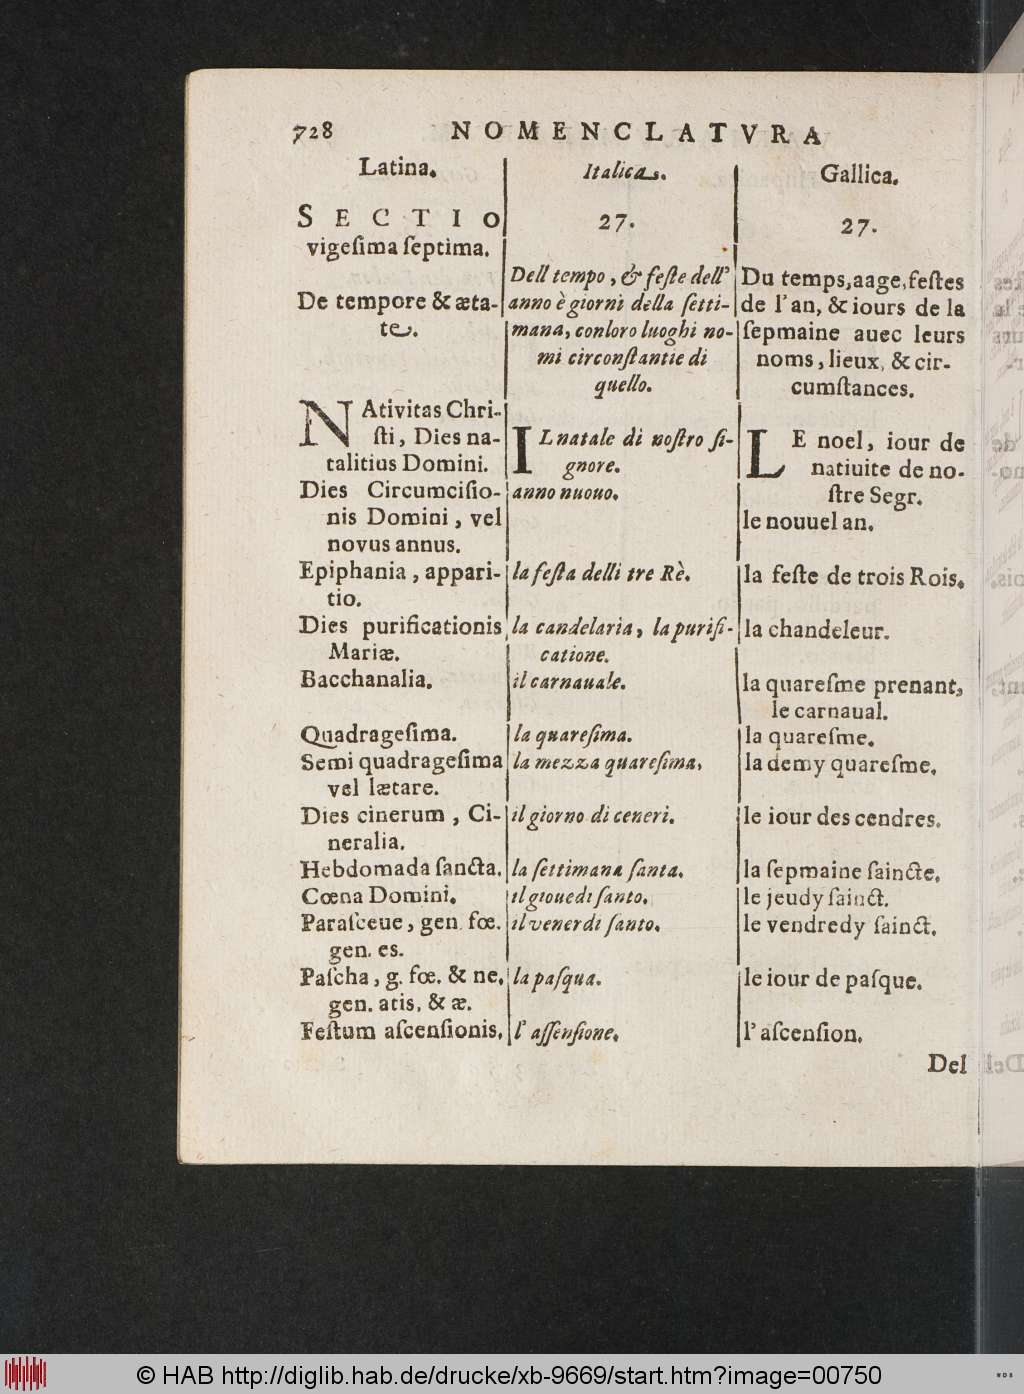 728 NOMENCLATVRA
Latina.
SECTIO
vigeſima ſeptima.
De tempore & æta-
te.
NAtivitas Chri-
ſti, Dies na-
talitius Domini.
Dies Circumciſio-
nis Domini, vel
novus annus.
Epiphania, appari-
tio.
Dies purificationis
Mariæ.
Bacchanalia.
Quadrageſima.
Semi quadrageſima
vel lætare.
Dies cinerum, Ci-
neralia.
Hebdomada ſancta.
Cœna Domini.
Paraſceue, gen. fœ.
gen. es.
Paſcha, g. fœ. & ne.
gen. atis, & æ.
Feſtum aſcenſionis.
Italica.
27.
Dell tempo, & feſte dell'
anno è giorni della ſetti-
mana, conloro luoghi no-
mi circonſtantie di
quello.
IL natale di noſtro ſi-
gnore.
anno nuouo.
la feſta delli tre Rè.
la candelaria, la puriſi-
catione.
il carnauale.
la quareſima.
la mezza quareſima,
il giorno di ceneri.
la ſettimana ſanta.
il giouedi ſanto.
il venerdi ſanto.
la paſqua.
l' aſſenſione.
Gallica.
27.
Du temps, aage, feſtes
de l' an, & iours de la
ſepmaine auec leurs
noms, lieux, & cir-
cumſtances.
LE noel, iour de
natiuite de no-
ſtre Segr.
le nouuel an.
la feſte de trois Rois.
la chandeleur.
la quareſme prenant,
le carnaual.
la quareſme.
la demy quareſme.
le iour des cendres.
la ſepmaine ſaincte.
le jeudy ſainct.
le vendredy ſainct.
le iour de paſque.
l' aſcenſion.
Del
© HAB http://diglib.hab.de/drucke/xb-9669/start.htm?image=00750